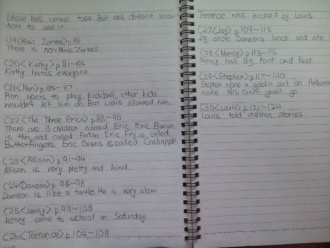 (19)<Miss Zarves>p.80
There is no Miss Zarves.
(20)<Kathy> p.81-84
Kathy hates everyone.
Ron wants to play kickball, other kids
wouldn't let him do. But Louis allowed him.
(22)<The Three Erics> p.88-90
There are 3 children named Eric. Eric Bacon
is thin and called Fatso. Eric Fry is called
Butterfingers. Eric Ovens is called Crabapple.
(23)<Allison> p.91-94
Allison is very pretty and kind.
(24)<Dameon> p.95-98
Dameon is like a turtle. He is very slow.
(25)<Jenny> p.99-103
Jenny came to school in Saturday.
(26)<Terrence> p.104-108
Terrence was kicked by Louis.
(27)<Joy> p.109-112
Joy stole Dameon's lunch and ate.
(28)<Nancy> p.113-116
Nancy has big foot and feet.
(29)<Stephen> p.117-120
(30)<Louis> p.121-124
Louis told children stories.